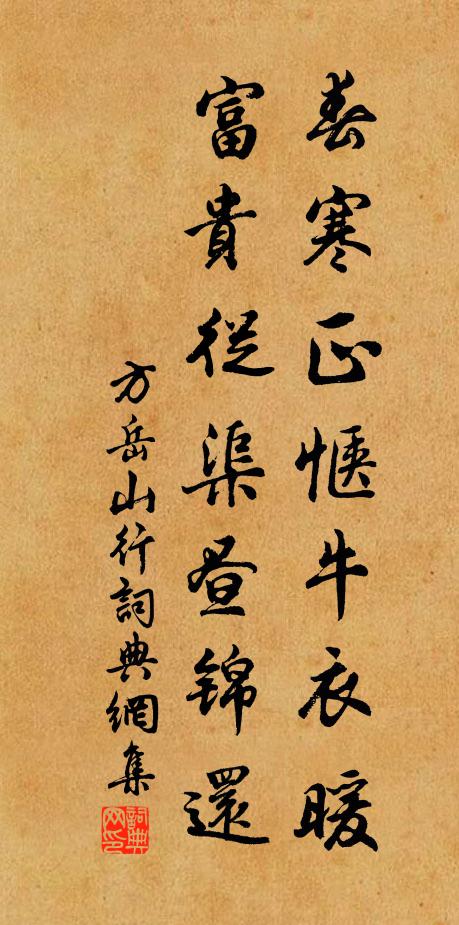 春寒正惬牛衣暖
富貴從渠昼錦還
方岳山行詞典網集
詞典网印